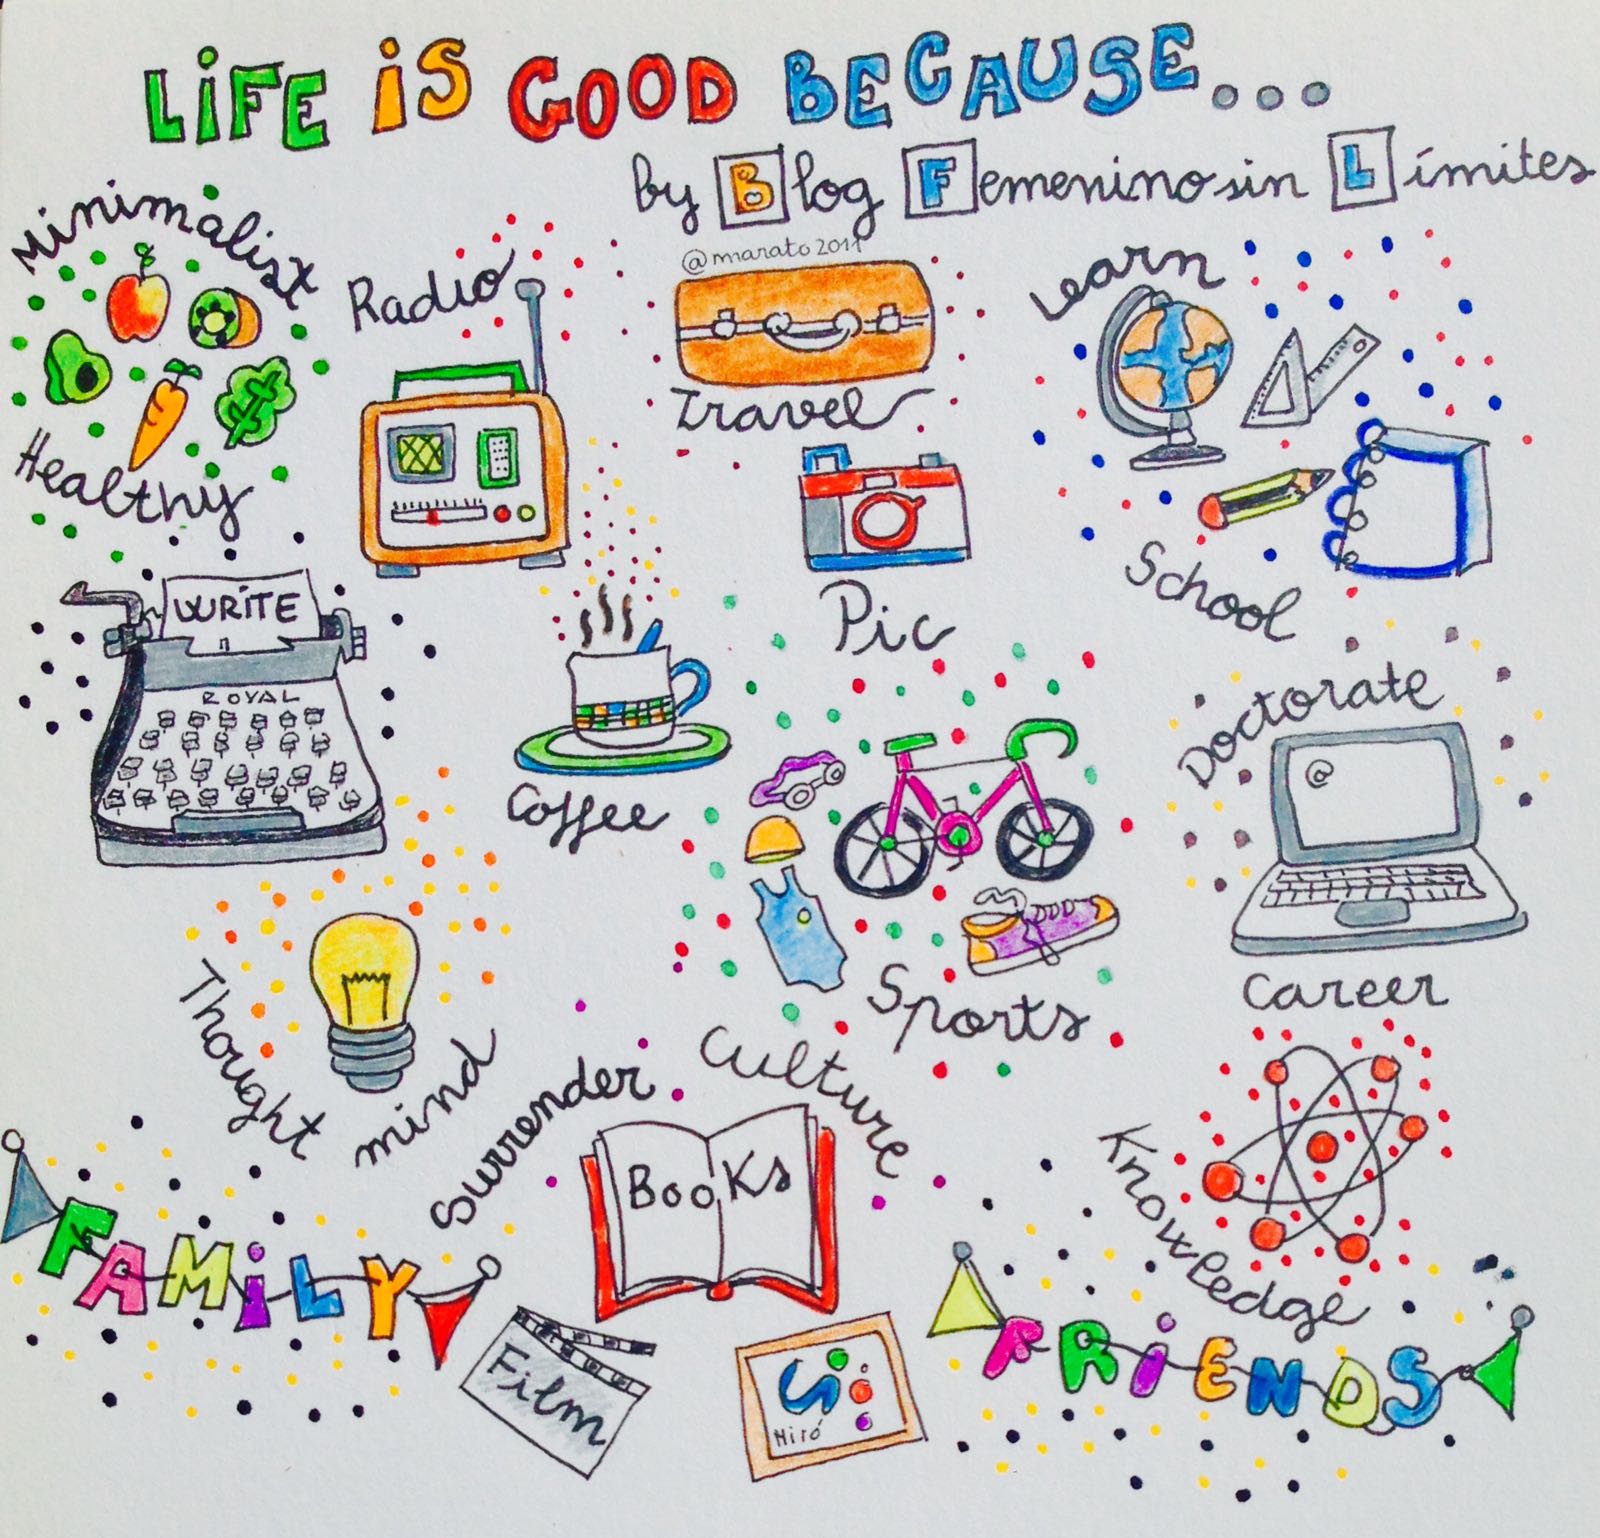 LiFE iS GOOD BECAUSE...
by Blog Femenino sin Límites
@marato2011
Minimalist
Healthy
Radio
Travel
Learn
School
Pic
WRiTE
ROYAL
Coffee
Doctorate
@
Career
Sports
Thought
mind
Surrender
Culture
Books
Knowledge
FAMiLY
FRiENDS
Film
Miró